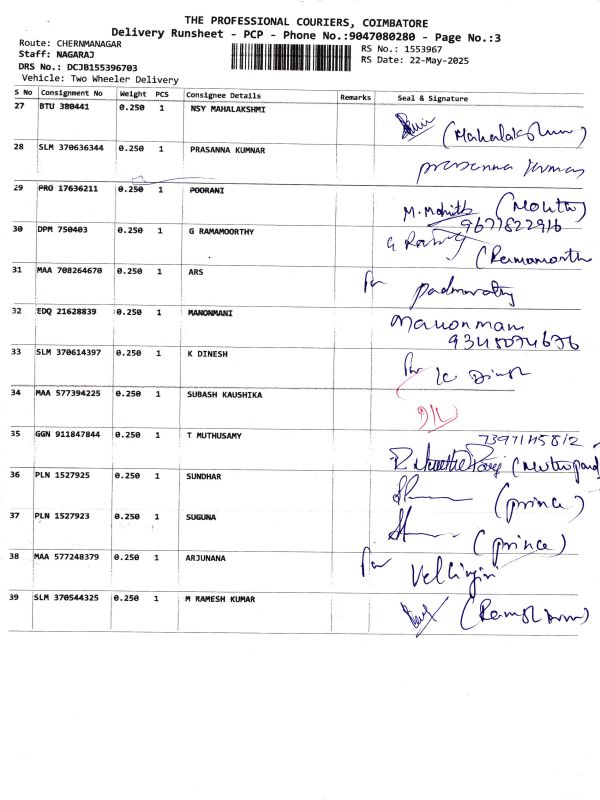 THE PROFESSIONAL COURIERS, COIMBATORE
Delivery Runsheet - PCP - Phone No.:9047080280 - Page No.:3
Route: CHERNMANAGAR
RS No.: 1553967
Staff: NAGARAJ
RS Date: 22-May-2025
DRS No.: DCJB155396703
Vehicle: Two Wheeler Delivery
S No Consignment No Weight PCS Consignee Details Remarks Seal & Signature
27 BTU 380441 0.250 1 NSY MAHALAKSHMI
(Mahalakshmi)
28 SLM 370636344 0.250 1 PRASANNA KUMNAR
prasanna kumar
29 PRO 17636211 0.250 1 POORANI
M. Mohith (Mohith)
9677822916
30 DPM 750403 0.250 1 G RAMAMOORTHY
31 MAA 708264670 0.250 1 ARS
32 EDQ 21628839 0.250 1 MANONMANI
Manonmani
33 SLM 370614397 0.250 1 K DINESH
K Dinesh
34 MAA 577394225 0.250 1 SUBASH KAUSHIKA
D/L
35 GGN 911847844 0.250 1 T MUTHUSAMY
36 PLN 1527925 0.250 1 SUNDHAR
(prince)
37 PLN 1527923 0.250 1 SUGUNA
(prince)
38 MAA 577248379 0.250 1 ARJUNANA
Vellingiri
39 SLM 370544325 0.250 1 M RAMESH KUMAR